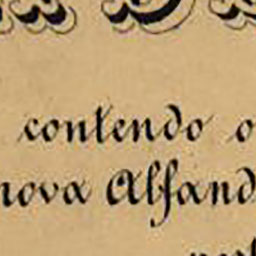 contendo o
nova Alfand